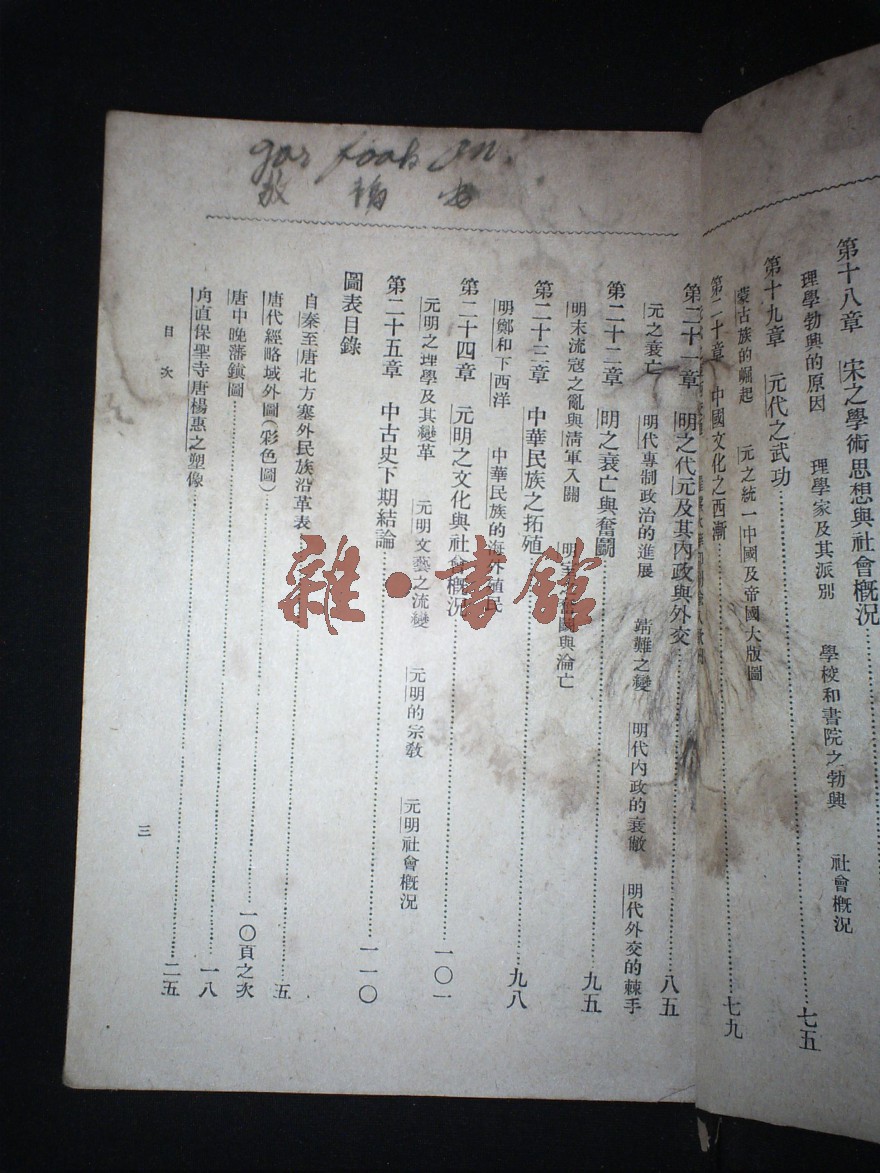 gar foak on.
第十八章　宋之學術思想與社會概況
理學勃興的原因　理學家及其派別　學校和書院之勃興　社會概況
第十九章　元代之武功 七五
蒙古族的崛起　元之統一中國及帝國大版圖
第二十章　中國文化之西漸 七九
第二十一章　明之代元及其內政與外交 八五
元之衰亡　明代專制政治的進展　靖難之變　明代內政的衰敝　明代外交的棘手
第二十二章　明之衰亡與奮鬭 九五
明末流寇之亂與淸軍入關　明 與淪亡
第二十三章　中華民族之拓殖 九八
明鄭和下西洋　中華民族的海外殖民
第二十四章　元明之文化與社會概況 一〇一
元明之理學及其變革　元明文藝之流變　元明的宗敎　元明社會概況
第二十五章　中古史下期結論 一一〇
圖表目錄
自秦至唐北方塞外民族沿革表 五
唐代經略域外圖(彩色圖) 一〇頁之次
唐中晚藩鎮圖 一八
甪直保聖寺唐楊惠之塑像 二五
目次
三
雜·書館